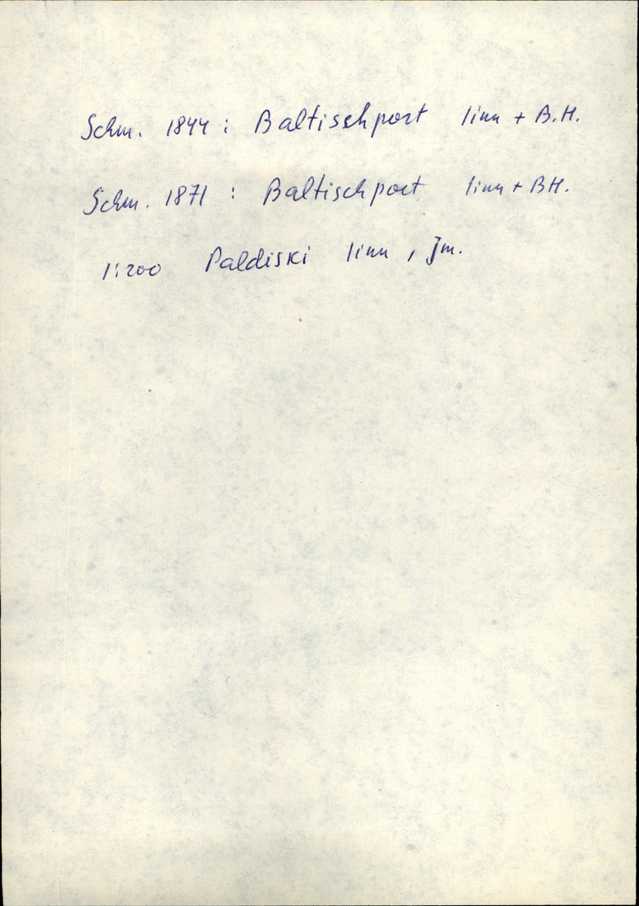 Schm. 1844 : Baltischport linn + B.H.
Schm. 1871 : Baltischport linn + BH.
1:200 Paldiski linn, jm.